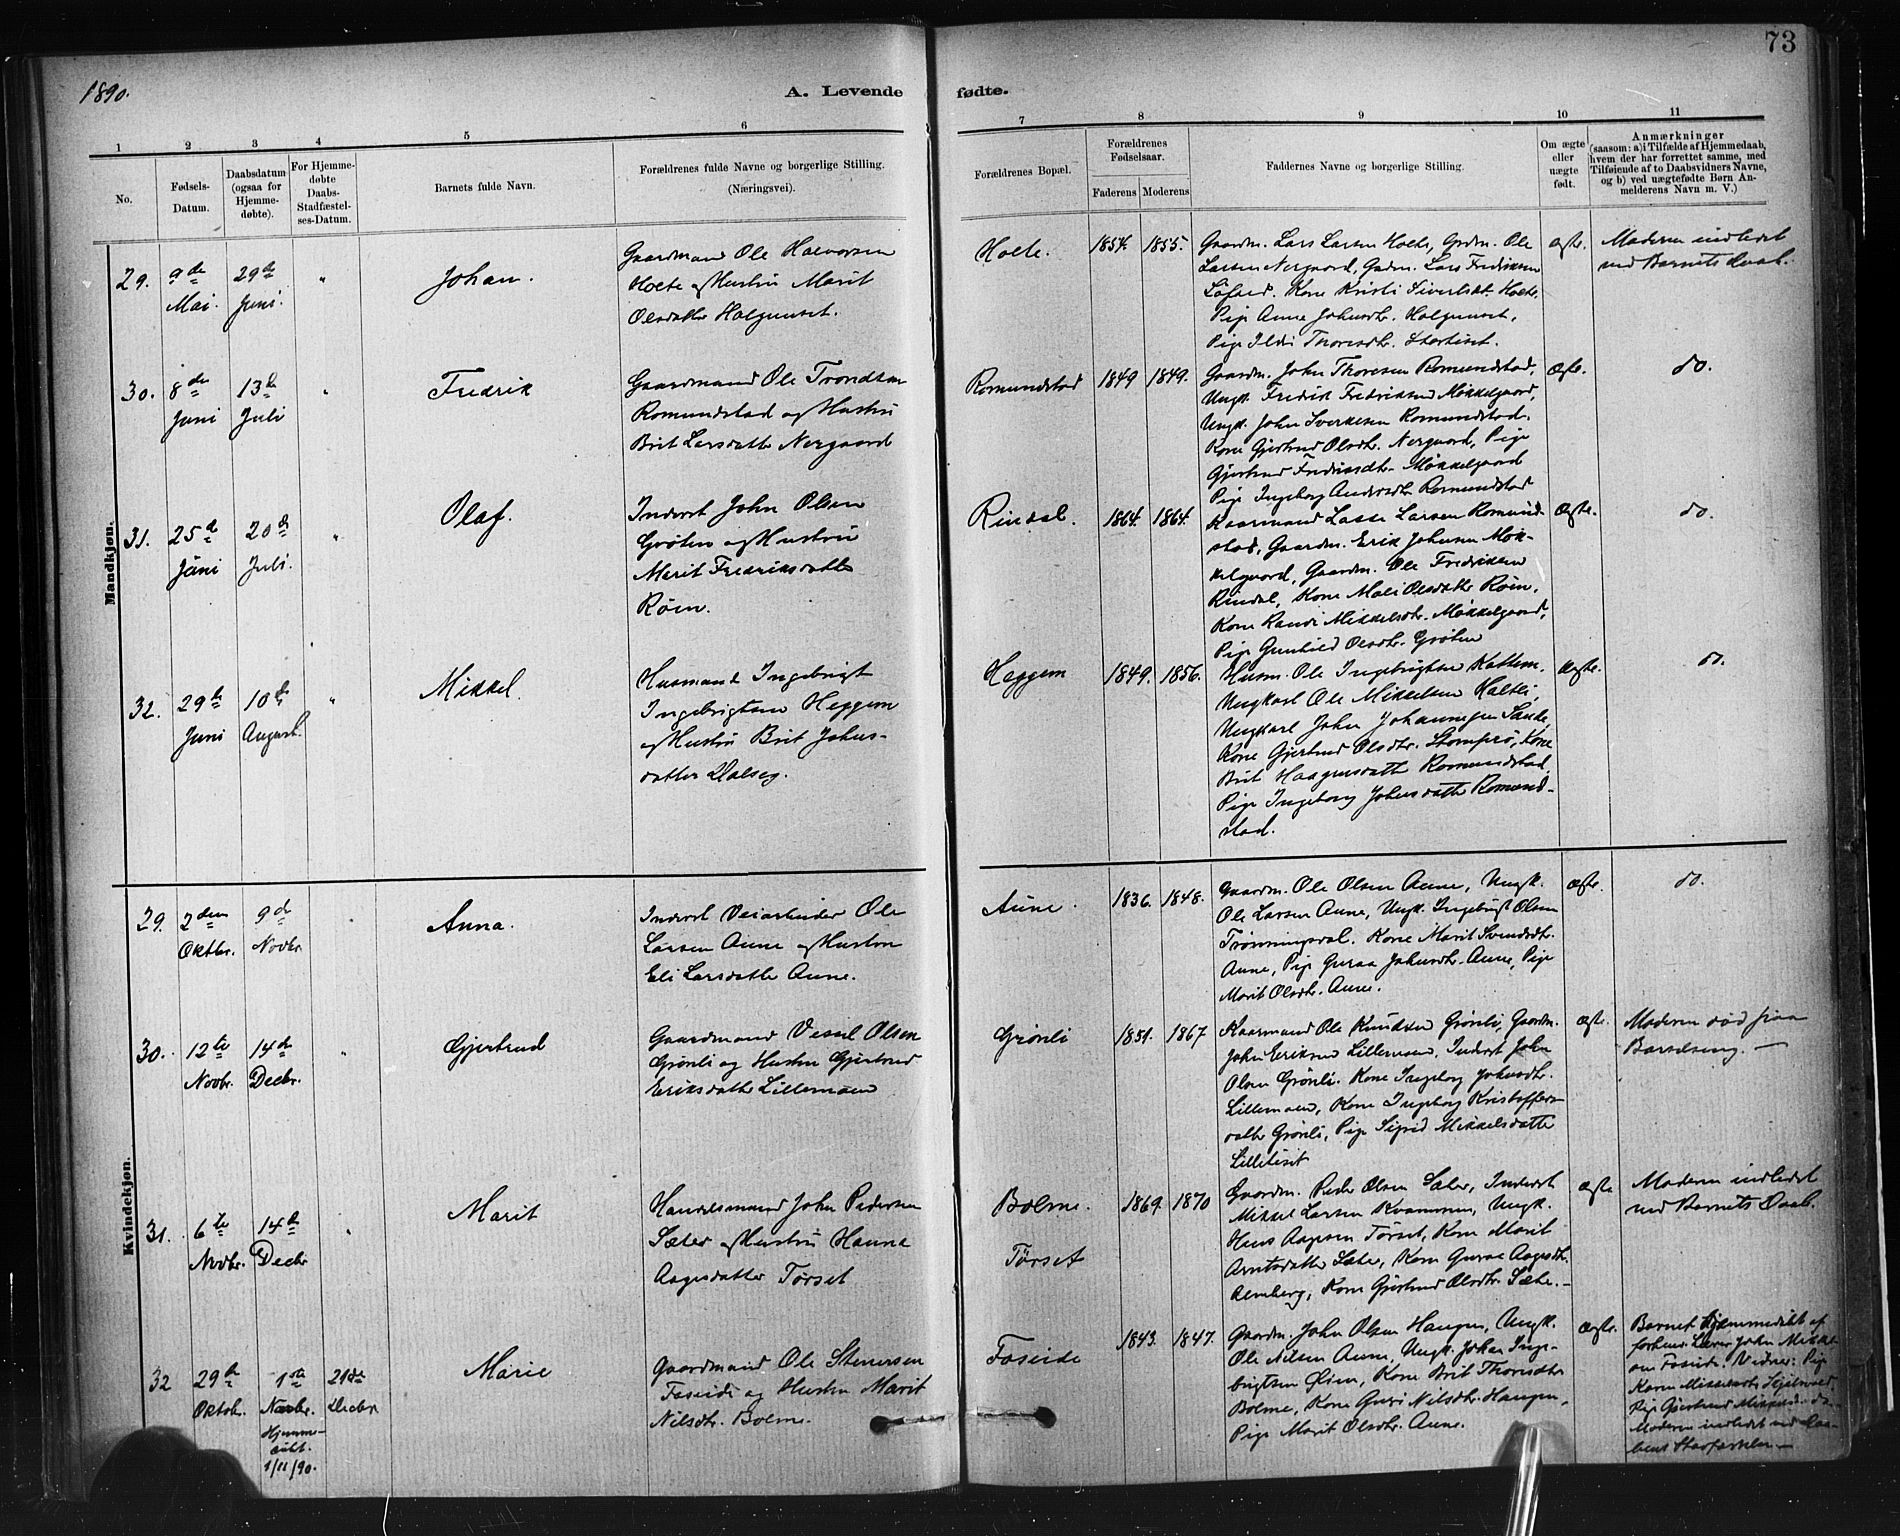 1890.
A. Levende fødte.
73
1 2 3 4 5 6 7 8 9 10 11
No.
Fødsels-Datum.
Daabsdatum (ogsaa for Hjemme-døbte).
For Hjemme-døbte Daabs-Stadfæstel-ses-Datum.
Barnets fulde Navn.
Forældrenes fulde Navne og borgerlige Stilling. (Næringsvei).
Forældrenes Bopæl.
Forældrenes Fødselsaar.
Faderens Moderens
Faddernes Navne og borgerlige Stilling.
Om ægte eller uægte født.
Anmærkninger (saasom: a) i Tilfælde af Hjemmedaab, hvem der har forrettet samme, med Tilføiende af to Daabsvidners Navne, og b) ved uægtefødte Børn An-melderens Navn m. V.)
Mandkjøn.
29. 9de Mai. 29de Juni. "
Johan.
Gaardmand Ole Halvorsen
Holte og Hustru Marit
Olsdatter Halgunset.
Holte. 1854. 1855.
Gaardm. Lars Larsen Holte, Grdm. Ole
Larsen Nergaard, Gadm. Lars Fredriksen
Løfald. Kone Kristi Sivertsdt. Holte,
Pige Anne Johnsdtr. Halgunset,
Pige Ildri Thoresdtr. Stortiset.
ægte.
Moderen indledet
ved Barnets Daab.
30. 8de Juni 13de Juli "
Fredrik
Gaardmand Ole Trondsen
Romundstad og Hustru
Brit Larsdatter Nergaard
Romundstad 1849 1849.
Gaardm. John Thoresen Romundstad,
Ungk. Fredrik Fredriksen Møkkelgaard,
Ungk. John Sverkesen Romundstad.
Kone Gjertrud Olsdtr. Nergaard, Pige
Gjertrud Fredriksdtr. Møkkelgaard
Pige Ingeborg Andersdtr Romundstad
ægte.
do.
31. 25de Juni 20de Juli. "
Olaf.
Inderst John Olsen
Grøten og Hustru
Marit Fredriksdatter
Røen.
Rindal. 1864. 1864.
Kaarmand Lasse Larsen Romund-
stad, Gaardm. Erik Johnsen Møk-
kelgaard, Gaardm. Ole Fredriksen
Rindal, Kone Mali Olsdatter Røen,
Kone Randi Mikkelsdtr. Møkkelgaard,
Pige Gunhild Olsdtr. Grøten
Ægte.
do.
32. 29de Juni 10de August. "
Mikkel.
Husmand Ingebrigt
Ingebrigtsen Heggem
og Hustru Brit Johns-
datter
Heggem 1849. 1856.
Husm. Ole Ingebrigtsen Kattem.
Ungkarl Ole Mikkelsen Haltli,
Ungkarl John Johannesen Sande,
Kone Gjertrud Olsdtr. Stomprø, Kone
Brit Haagensdatter Romundstad,
Pige Ingeborg Johnsdatter Romund-
stad.
Ægte.
do.
Kvindekjøn.
29. 2den Oktbr. 9de Novbr.
Anna.
Inderst Veiarbeider Ole
Larsen Aune og Hustru
Eli Larsdatter Aune.
Aune. 1836. 1848.
Gaardm. Ole Olsen Aune, Ungk.
Ole Larsen Aune, Ungk. Ingebrigt Olsen
Trønningsdal. Kone Marit Svendsdtr.
Aune, Pige Guraa Johnsdtr. Aune, Pige
Marit Olsdtr. Aune.
Ægte.
do.
30. 12te Novbr. 14de Decbr. "
Gjertrud
Gaardmand Vessel Olsen
Grønli og Hustru Gjertrud
Eriksdatter Lillemoen
Grønli 1851. 1867
Kaarmand Ole Knudsen Grønli, Gaardm.
John Eriksen Lillemoen, Inderst John
Olsen Grønli. Kone Ingeborg Johnsdtr.
Lillemoen, Kone Ingeborg Kristoffers-
datter Grønli, Pige Sigrid Mikkelsdatter
Lilletiset
Ægte.
Moderen død paa
Barselseng. —
31. 6te Novbr. 14de Decbr "
Marit
Handelsmand John Pedersen
Sæter og Hustru Hanna
Aagesdatter Tørset
Bolme.
Tørset
1869. 1870
Gaardm. Peder Olsen Sæter, Inderst
Mikkel Larsen Kvammen, Ungk.
Hans Aagesen Tørset, Kone Marit
Arntsdatter Sæter, Kone Guraa Aagesdtr.
Almberg, Kone Gjertrud Olsdtr. Sæter. —
ægte
Moderen indledet
ved Barnets Daab.
32 29de Oktobr. 1ste Novbr. Hjemme-døbt. 1/11/90. 21de Decbr
Marie
Gaardmand Ole Stenersen
Faseide og Hustru Marit
Nilsdtr. Bolme.
Faseide
1843. 1847.
Gaardm. John Olsen Haugen, Ungk.
Ole Nilsen Aune, Ungk. Johan Inge-
brigtsen Øien, Kone Brit Thoresdtr
Bolme, Kone Guri Nilsdtr. Haugen,
Pige Marit Olsdtr. Aune.
Ægte.
Barnet hjemmedøbt af
forhenv. Lærer John Mikkel-
sen Faseide. Vidner: Pige
Karen Mikkelsdtr.
Pige Gjertrud Mikkelsdtr. do.
Moderen indledet ved Daa-
bens Stadfæstelse —